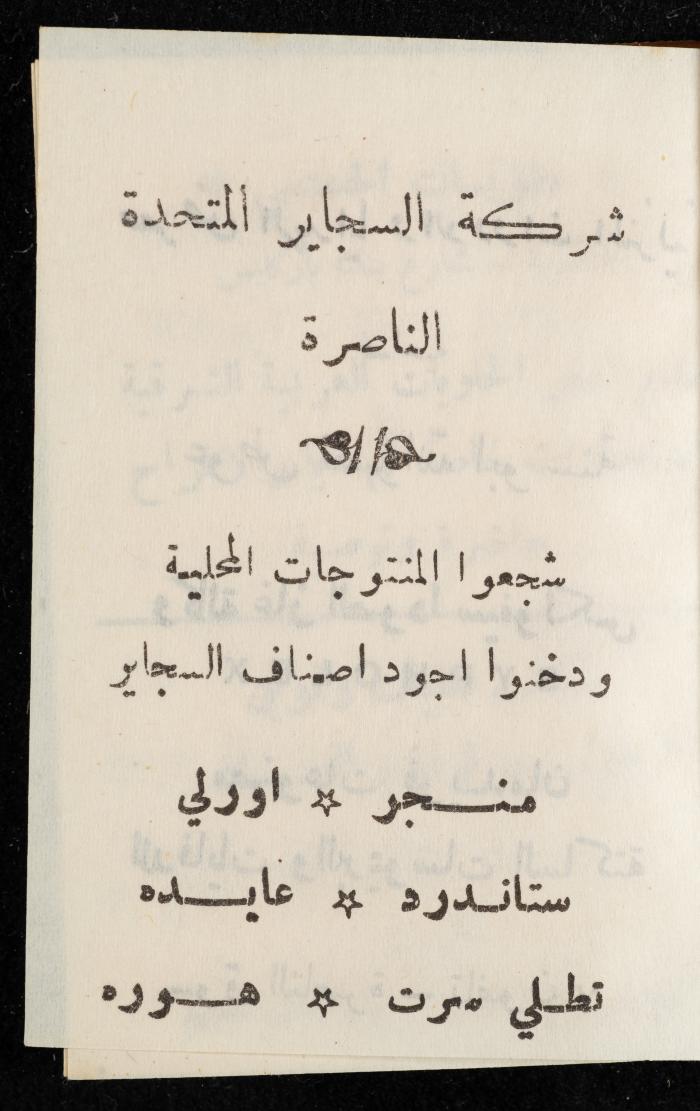 شركة السجاير المتحدة
الناصرة
شجعوا المنتوجات المحلية
ودخنوا اجود اصناف السجاير
منسجر ☆ اورلي
ستاندرد ☆ عايده
تطلي سرت ☆ هوره